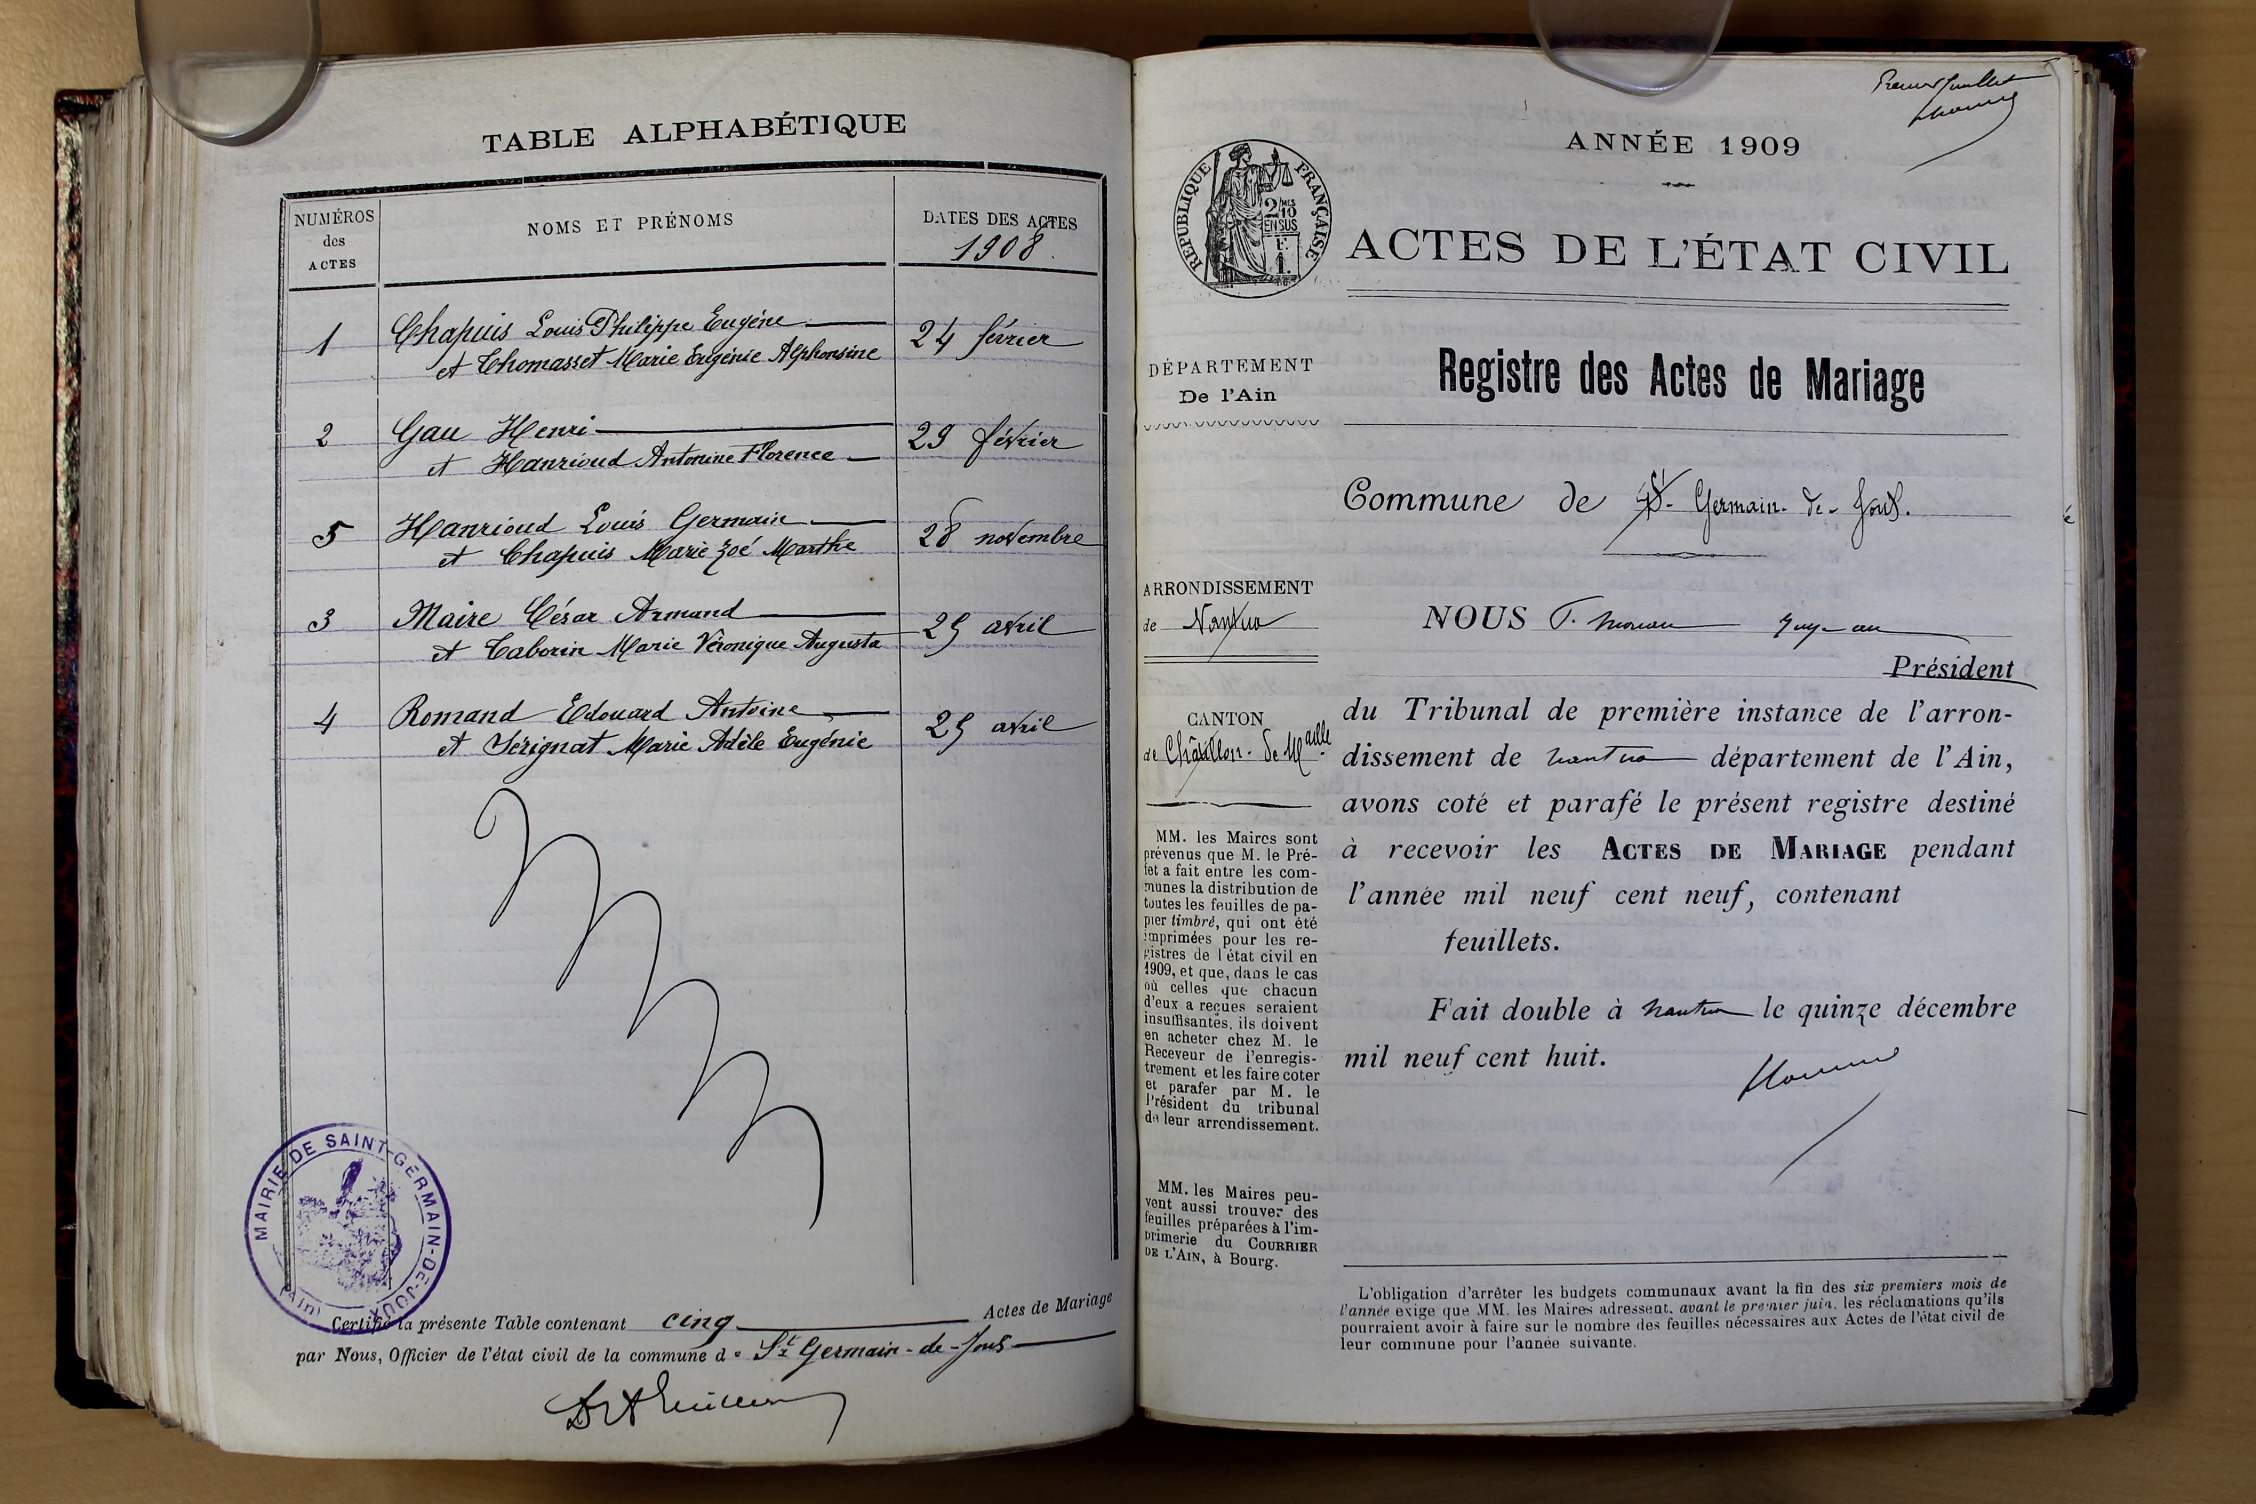 TABLE ALPHABÉTIQUE
NUMÉROS
des
ACTES
NOMS ET PRÉNOMS
DATES DES ACTES
1908.
1
Chapuis Louis Philippe Eugène
et Thomasset Marie Eugénie Alphonsine
24 février
2
Gau Henri
et Hanrioud Antonine Florence
29 février
5
Hanrioud Louis Germain
et Chapuis Marie Zoé Marthe
28 novembre
3
Maire César Armand
et Taborin Marie Véronique Augusta
25 avril
4
Romand Edouard Antoine
et Sérignat Marie Adèle Eugénie
25 avril
MAIRIE DE SAINT-GERMAIN-DE-JOUX
(Ain)
Certifié la présente Table contenant cinq Actes de Mariage
par Nous, Officier de l'état civil de la commune de St Germain-de-Joux
Premier feuillet
ANNÉE 1909
RÉPUBLIQUE FRANÇAISE
2/10
EN SUS
F.
1.
ACTES DE L'ÉTAT CIVIL
DÉPARTEMENT
De l'Ain
Registre des Actes de Mariage
Commune de St- Germain-de-Joux.
ARRONDISSEMENT
de Nantua
CANTON
de Châtillon-de-Maille
MM. les Maires sont
prévenus que M. le Pré-
fet a fait entre les com-
munes la distribution de
toutes les feuilles de pa-
pier timbré, qui ont été
imprimées pour les re-
gistres de l'état civil en
1909, et que, dans le cas
où celles que chacun
d'eux a reçues seraient
insuffisantes, ils doivent
en acheter chez M. le
Receveur de l'enregis-
trement et les faire coter
et parafer par M. le
Président du tribunal
de leur arrondissement.
MM. les Maires peu-
vent aussi trouver des
feuilles préparées à l'im-
primerie du COURRIER
DE L'AIN, à Bourg.
NOUS
Président
du Tribunal de première instance de l'arron-
dissement de nantua département de l'Ain,
avons coté et parafé le présent registre destiné
à recevoir les ACTES DE MARIAGE pendant
l'année mil neuf cent neuf, contenant
feuillets.
Fait double à nantua le quinze décembre
mil neuf cent huit.
L'obligation d'arrêter les budgets communaux avant la fin des six premiers mois de
l'année exige que MM. les Maires adressent, avant le premier juin, les réclamations qu'ils
pourraient avoir à faire sur le nombre des feuilles nécessaires aux Actes de l'état civil de
leur commune pour l'année suivante.